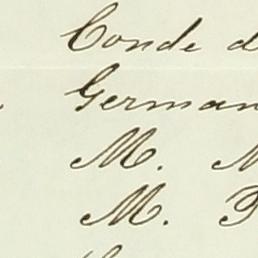 Conde d
German
M. M
M. P